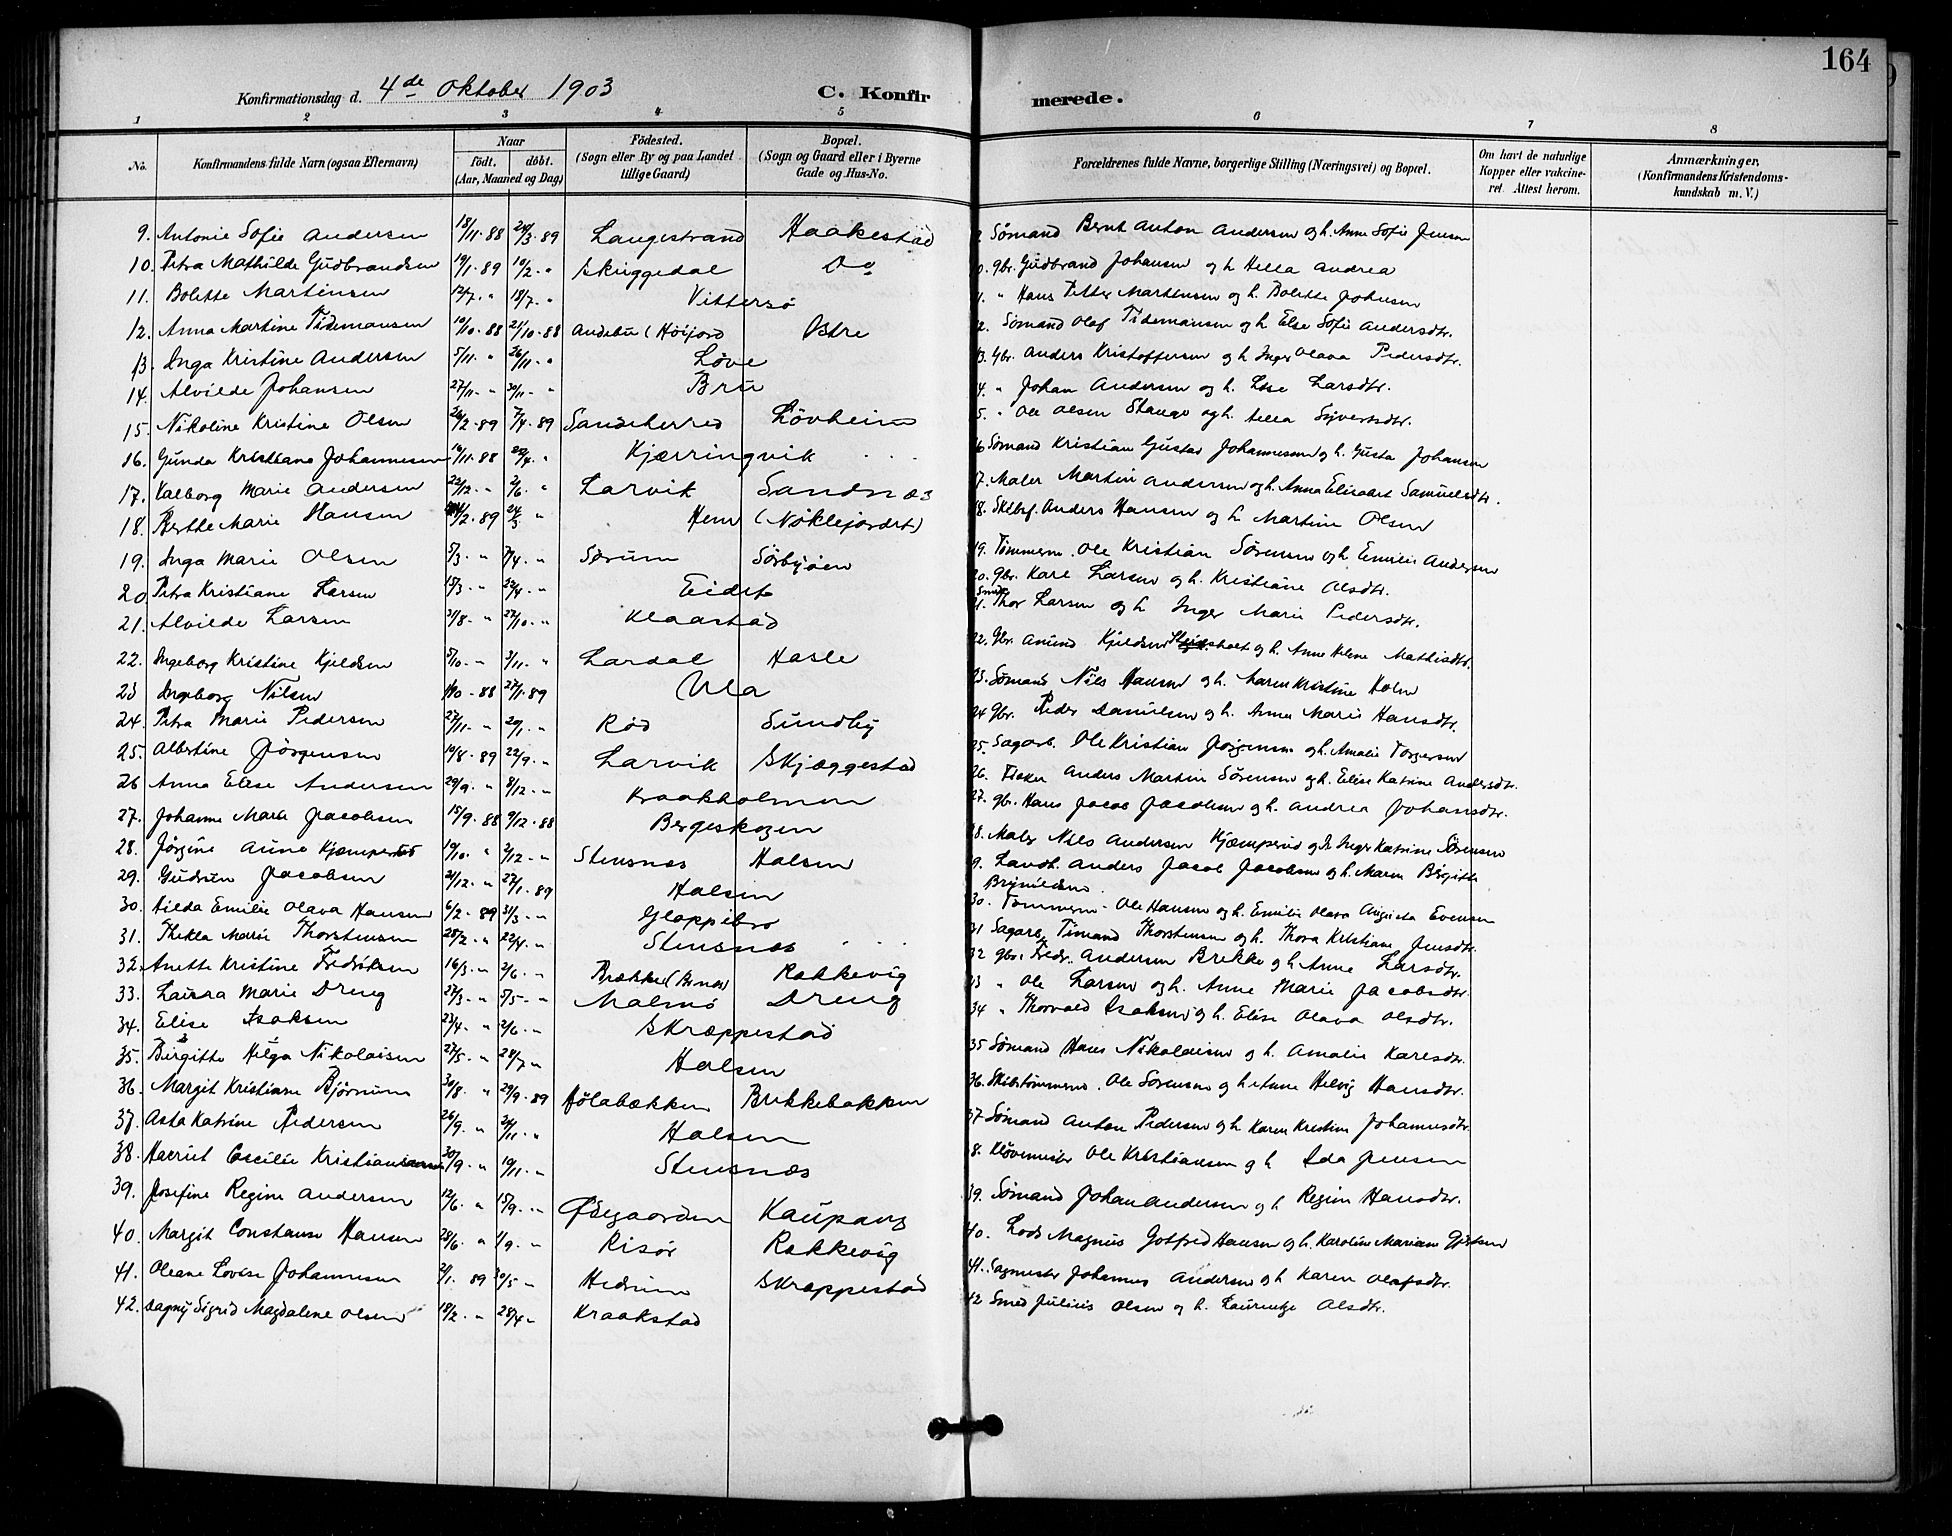 164
Konfirmationsdag d. 4de Oktober 1903 C. Konfirmerede.
1 2 3 4 5 6 7 8
No. Konfirmandens fulde Navn (ogsaa Efternavn) Naar födt. döbt. (Aar, Maaned og Dag) Födested. (Sogn eller By og paa Landet tillige Gaard) Bopæl. (Sogn og Gaard eller i Byerne Gade og Hus-No. Forældrenes fulde Navne, borgerlige Stilling (Næringsvei) og Bopæl. Om havt de naturlige Kopper eller vaccineret. Attest herom. Anmærkninger, (Konfirmandens Kristendomskundskab m. V.)
9. Antonie Sofie Andersen 18/11-88 24/3-89 Langestrand Haakestad Sömand Bernt Anton Andersen og h. Anne Sofie Jensen
10. Petra Mathilde Gudbrandsen 19/1-89 10/2-" Skuggedal Do Gbr. Gudbrand Johansen og h. Hella Andrea
11. Bolette Martinsen 12/7-" 18/7-" Vittersö " Hans Petter Martinsen og h. Bolette Johnsen
12. Anna Martine Tidemansen 10/10-88 21/10-88 Andebu (Höijord Østre Sömand Olaf Tidemansen og h. Else Sofie Andersdtr.
13. Inga Kristine Andersen 5/11-" 26/11-" Löve 13. Gbr. Anders Kristoffersen og h. Inger Olava Pedersdtr.
14. Alvilde Johansen 27/11-" 30/11-" Bru 4. " Johan Andersen og h. Lise Larsdtr.
15. Nikoline Kristine Olsen 26/2-89 7/4-89 Sandeherred Lövheim 5. " Ole Olsen Stange og h. Hella Syvertsdtr.
16. Gunda Kristiana Johannesen 16/11-88 22/4-" Kjærringvik 6 Sömand Kristian Gustav Johannesen og h. Gusta Johansen
17. Valborg Marie Andersen 22/12-" 2/6-" Larvik Sandnæs 7. Maler Martin Andersen og h. Anna Elisabet Samuelsdtr.
18. Berthe Marie Hansen /2-89 24/3 " Hem (Nöklejordet) 18. Skibsf. Anders Hansen og h. Martine Olsen
19. Inga Marie Olsen 5/3-" 7/4-" Sörum Sörbyöen 19. Tömmerm. Ole Kristian Sörensen og h. Emilie Andersen
20. Petra Kristiane Larsen 15/3-" 22/4-" Eidet 20. Gbr. Karl Larsen og h. Kristiane Olsdtr.
21. Alvilde Larsen 31/8-" 27/10-" Klaastad 21. Smed Thor Larsen og h Inger Marie Pedersdtr.
22. Ingeborg Kristine Kjeldsen 5/10-" 3/11-" Lardal Hasle 22. Gbr. Amund Kjeldsen og h. Anne Helene Mathisdtr.
23 Ingeborg Nilsen /10-88 27/1-89 Ula 23. Sömand Nils Hansen og h. Maren Kristine Holm
24. Petra Marie Pedersen 27/11-" 29/1-" Röd Sundby 24 Gbr. Peder Danielsen og h. Anne Marie Hansdtr.
25. Albertine Jörgensen 19/8-89 22/9-" Larvik Skjæggestad 25. Sagarb. Ole Kristian Jörgensen og h. Amalie Torgersen
26 Anna Elise Andersen 29/9-" 8/12-" Kraakholmen 26. Fisker Anders Martin Sörensen og h. Elise Katrine Andersdtr.
27. Johanne Marie Jacobsen 15/9-88 9/12-88 Bergeskogen 27. Gbr. Hans Jacob Jacobsen og h. Andrea Johansdtr.
28. Jörgine Anne Kjemperud 19/10-" 2/12-" Stensnæs Halsen 28. Maler Nils Andersen Kjæmperud og h. Inger Katrine Sörensen
29. Gudrun Jacobsen 21/12-" 27/1-89 Halsen 9. Landh. Anders Jacob Jacobsen og h. Maren Birgitte Brynildsen.
30. Hilda Emilie Olava Hansen 6/2-89 31/3-" Gloppebro 30. Tömmerm. Ole Hansen og h. Emilie Olava Augusta Evensen
31. Thekla Marie Thorstensen 28/2-" 22/4-" Stensnæs 31 Sagarb. Timand Thorstensen og h. Thora Kristiane Jensdtr.
32. Anette Kristine Fredriksen 16/3-" 2/6-" Brække (Brunla) Rækkevig 32 Gbr. Fredr. Andersen Brekke og h Anne Larsdtr.
33. Laura Marie Dreng 27/3-" 5/5-" Malmö Dreng 33 " Ole Larsen og h. Anne Marie Jacobsdtr.
34. Elise Isaksen 23/4-" 2/6-" Skræppestad 34 " Thorvald Isaksen og h. Elise Olava Olsdtr.
35. Birgitte Helga Nikolaisen 27/5-" 28/7-" Halsen 35 Sömand Hans Nikolaisen og h. Amalie Karlsdtr.
36. Margit Kristiane Björnum 30/8-" 29/9-89 Hölabækken Brekkebakken 36. Skibstömmerm. Ole Sörensen og h. Anne Helvig Hansdtr.
37. Asta Katrine Pedersen 26/9-" 24/11-" Halsen 37 Sömand Anton Pedersen og h. Karen Kristine Johannesdtr.
38. Harriet Cecilie Kristiansen 30/9-" 19/11-" Stensnæs 8. Klövmester Ole Kristiansen og h Ida Jensen
39. Josefine Regine Andersen 12/6-" 15/9-" Ödegaarden Kaupang 39. Sömand Johan Andersen og h Regine Hansdtr.
40. Margit Constanse Hansen 28/6-" 1/9-" Risör Rækkevig 40. Lods Magnus Gotfred Hansen og h. Karoline Mariane
41. Oleane Lovise Johannesen 2/1-89 30/5-" Hedrum Skræppestad 41. Sagmester Johannes Andersen og h Karen Olafsdtr.
42. Dagny Sigrid Magdalene Olsen 18/2-" 28/4-" Kraakstad 42 Smed Julius Olsen og h. Laurentze Olsdtr.